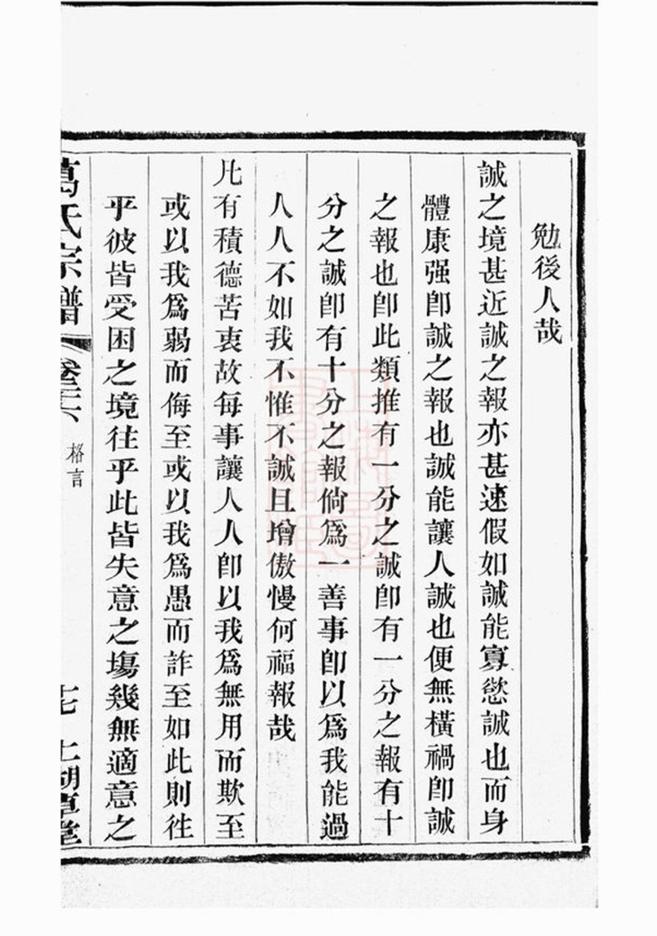 勉後人哉
誠之境甚近誠之報亦甚速假如誠能寡慾誠也而身
體康强卽誠之報也誠能讓人誠也便無橫禍卽誠
之報也卽此類推有一分之誠卽有一分之報有十
分之誠卽有十分之報倘爲一善事卽以爲我能過
人人不如我不惟不誠且增傲慢何福報哉
凡有積德苦衷故每事讓人人卽以我爲無用而欺至
或以我爲弱而侮至或以我爲愚而詐至如此則往
乎彼皆受困之境往乎此皆失意之塲幾無適意之
萬氏宗譜 格言 上湖草堂